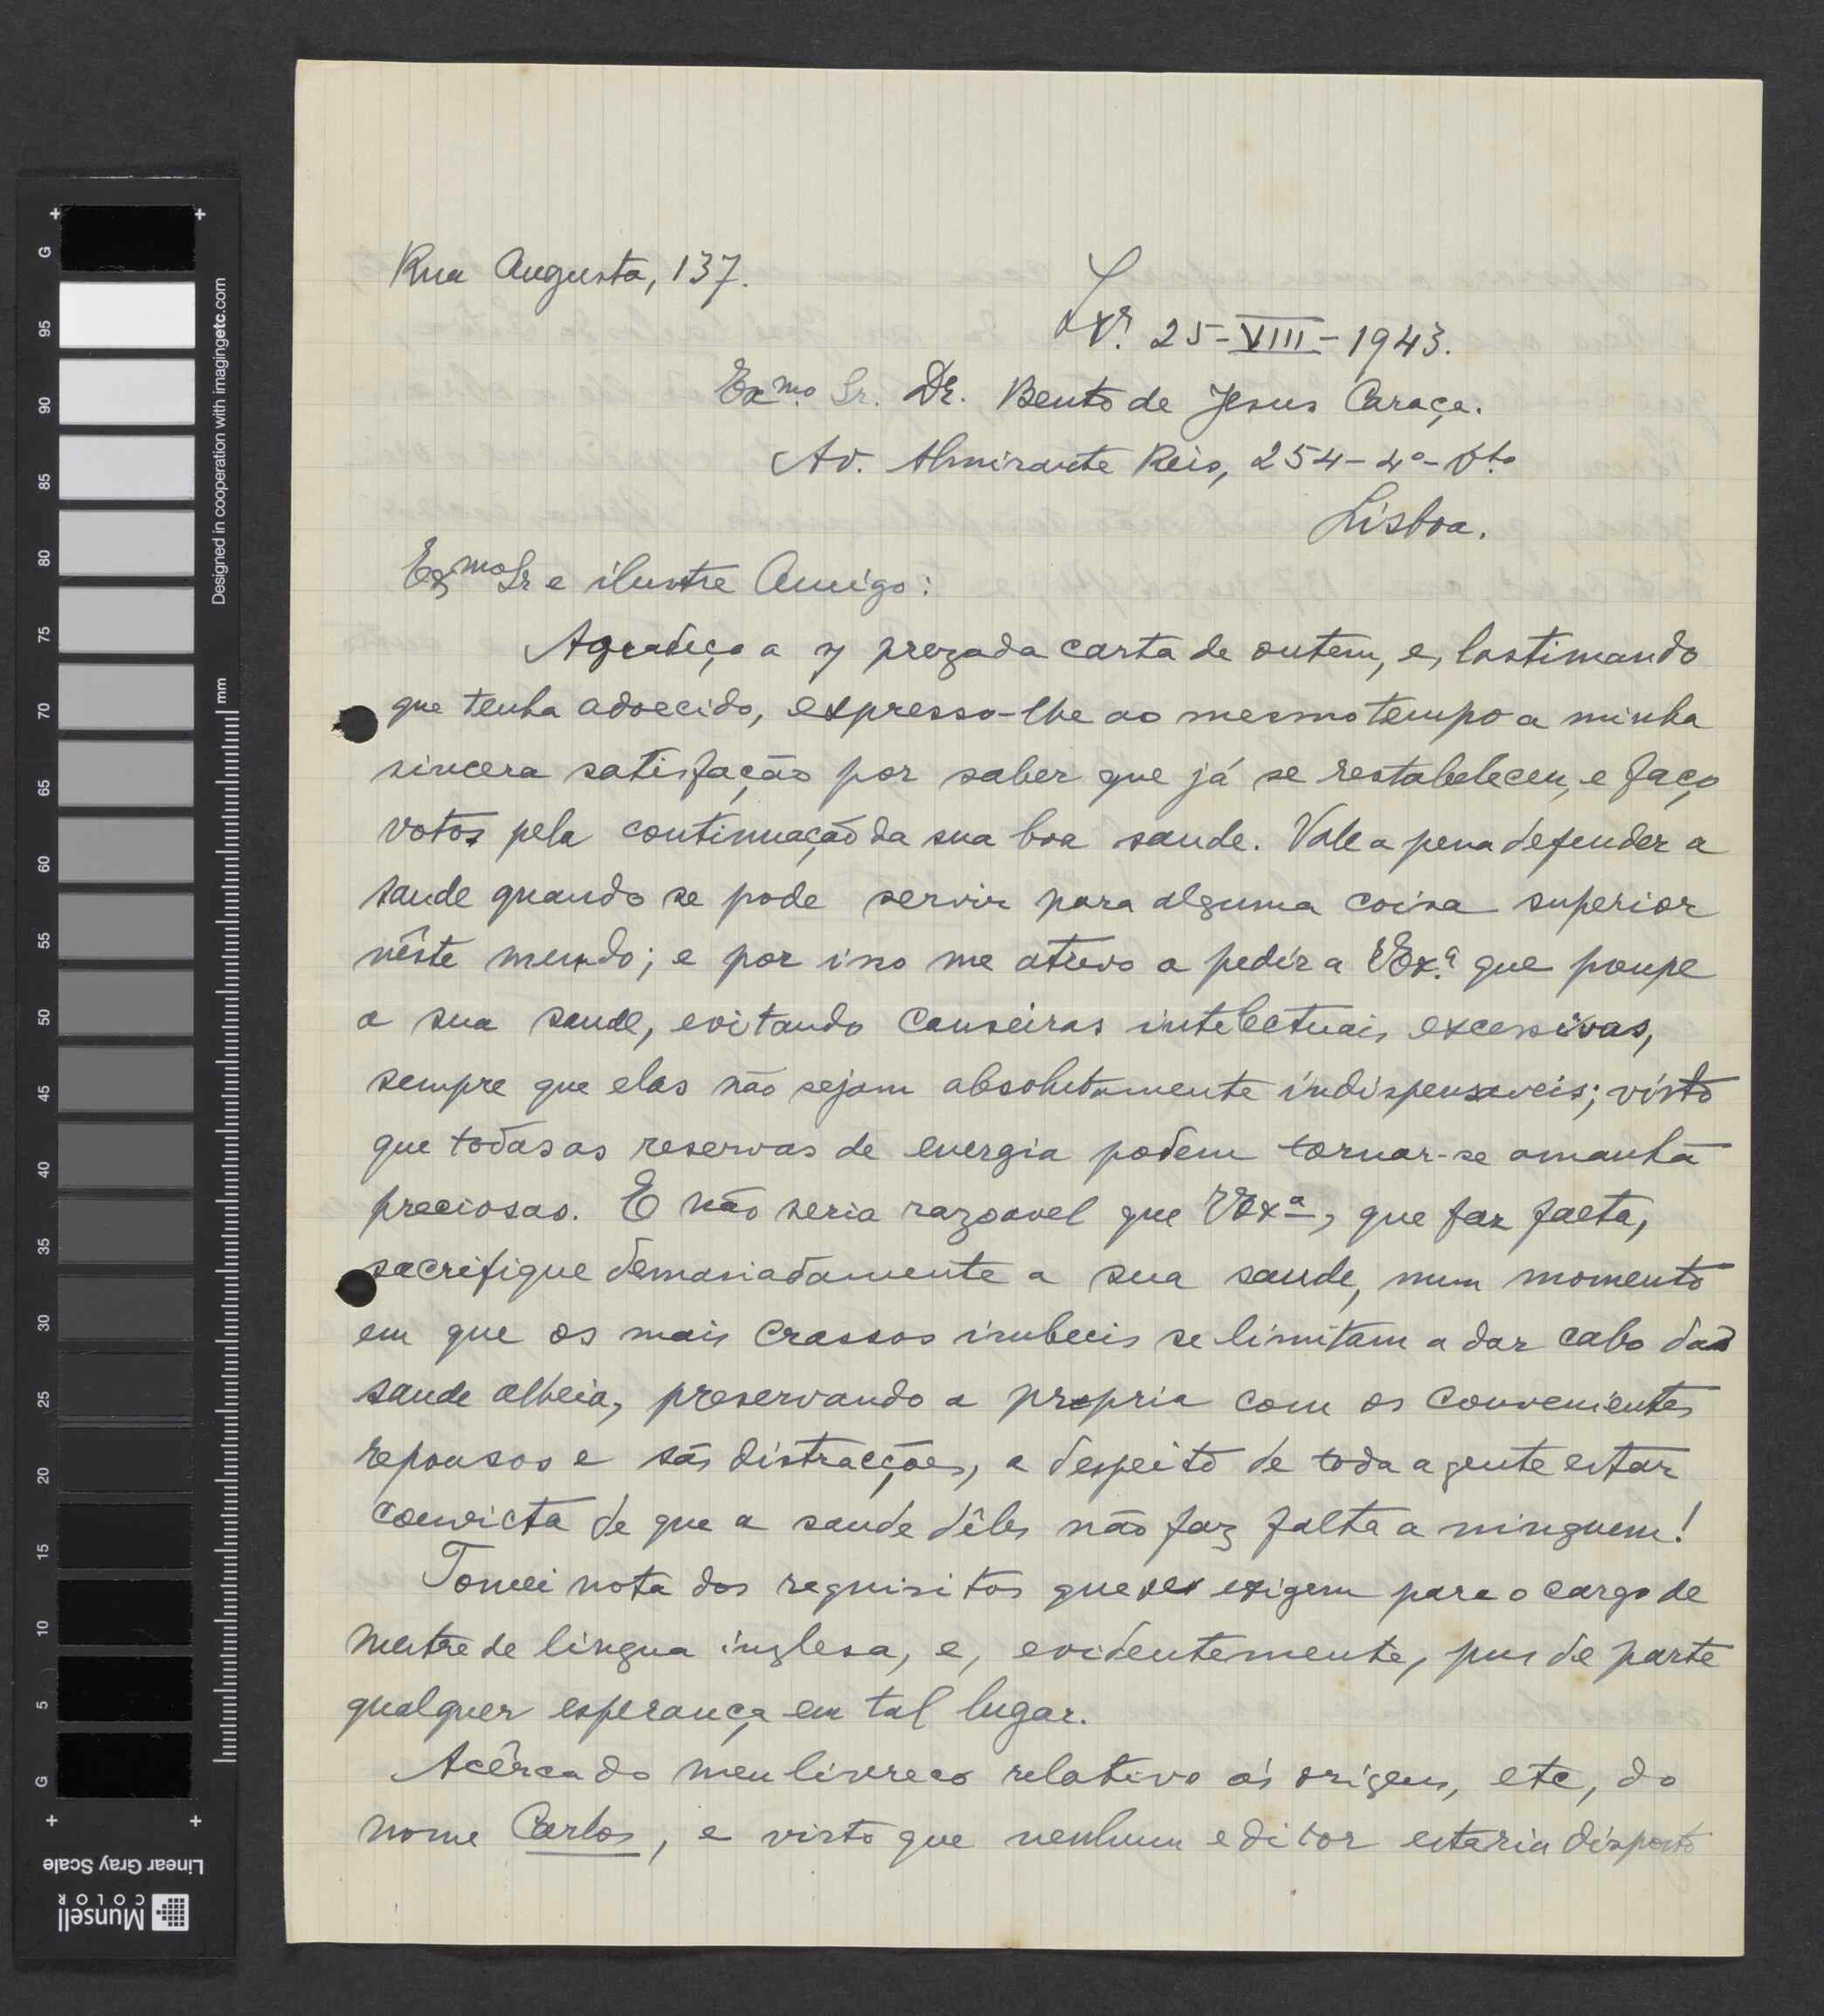 Rua Augusta, 137.
Lxª. 25-VIII-1943.
Exmo. Sr. Dr. Bento de Jesus Caraça.
Av. Almirante Reis, 254-4º-Dto
Lisboa.
Exmo Sr e ilustre Amigo:
Agradeço a prezada carta de ontem, e, lastimando
que tenha adoecido, expresso-lhe ao mesmo tempo a minha
sincera satisfação por saber que já se restabeleceu, e faço
votos pela continuação da sua boa saude. Vale a pena defender a
saude quando se pode servir para alguma coisa superior
nêste mundo; e por isso me atrevo a pedir a VExª. que poupe
a sua saude, evitando canseiras intelectuais excessivas,
sempre que elas não sejam absolutamente indispensaveis; visto
que todas as reservas de energia podem tornar-se amanhã
preciosas. E não seria razoavel que VExª, que faz falta,
sacrifique demasiadamente a sua saude, num momento
em que os mais crassos imbecis se limitam a dar cabo da
saude alheia, preservando a propria com os convenientes
repousos e sãs distracções, a despeito de toda a gente estar
convicta de que a saude dêles não faz falta a ninguem!
Tomei nota dos requisitos que se exigem para o cargo de
mestre de lingua inglesa, e, evidentemente, pus de parte
qualquer esperança em tal lugar.
Acêrca do meu livreco relativo ás origens, etc, do
nome Carlos, e visto que nenhum editor estaria disposto
Designed in cooperation with imagingetc.com
mm
G 95 90 85 80 75 70 65 60 55 50 45 40 35 30 25 20 15 10 5 G
Linear Gray Scale
Munsell
COLOR